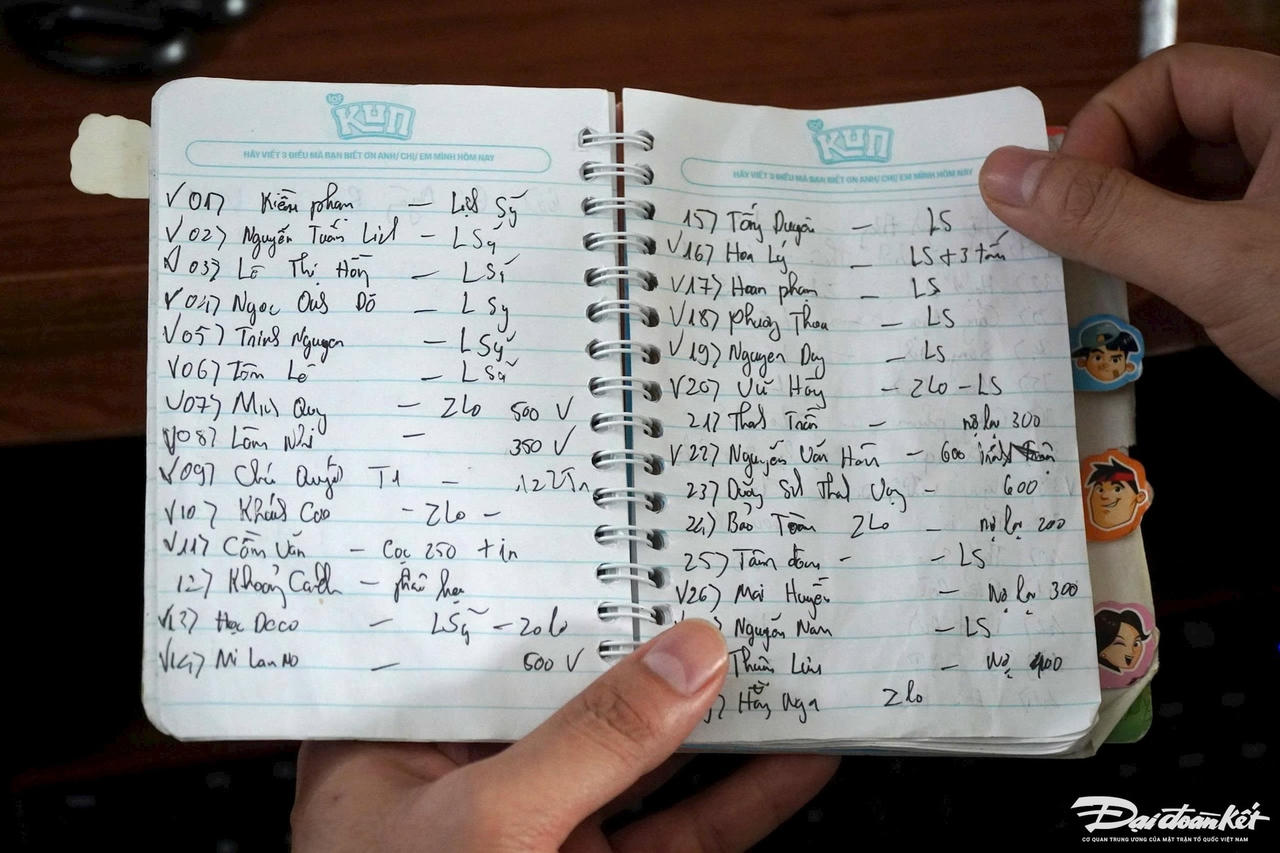 LOF KUN
HÃY VIẾT 3 ĐIỀU MÀ BẠN BIẾT ƠN ANH/ CHỊ/ EM MÌNH HÔM NAY
V 01) Kiềm phạm – Liệt Sỹ
V 02) Nguyễn Tuấn – L Sỹ
V 03) Lê Thị Hồng – L Sỹ
V 04) Ngọc Đỗ – L Sỹ
V 05) Trinh Nguyen – L Sỹ
V 06) Tâm Lê – L Sỹ
V 07) Minh Quý – Zlo 500 V
V 08) Lâm Nhi – 350 V
V 09) Chú T1 –
V 10) Khánh Cao – Zlo –
V 11) Cầm Vân – Cọc 250 + in
12) –
V 13) Học Deco – L Sỹ – Zolo
V 14) Mi Lan No – 500 V
LOF KUN
HÃY VIẾT 3 ĐIỀU MÀ BẠN BIẾT ƠN ANH/ CHỊ/ EM MÌNH HÔM NAY
15) Tống Duyên – LS
V 16) Hoa Lý – LS + 3 tấm
V 17) Hoan phạm – LS
V 18) Phương Thoa – LS
V 19) Nguyen Duy – LS
V 20) Vũ Hồng – Zlo – LS
21) Thanh Trần – nợ lại 300
V 22) Nguyễn Văn Hân – 600
23) – 600
24) Bảo Toàn Zlo – nợ lại 200
25) Tâm – LS
V 26) Mai Huyền – Nợ lại 300
Nguyễn Nam – LS
– Nợ 400
Hằng Nga Zlo
Đại đoàn kết
CƠ QUAN TRUNG ƯƠNG CỦA MẶT TRẬN TỔ QUỐC VIỆT NAM